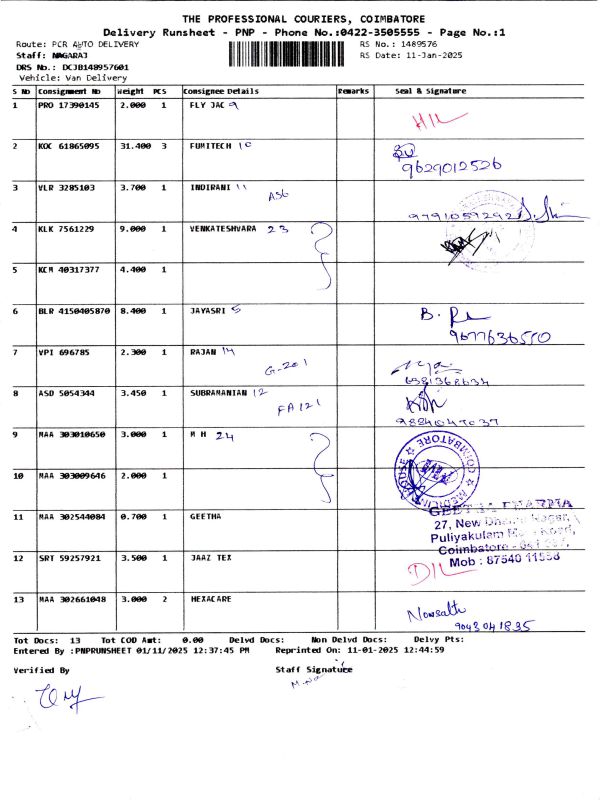 THE PROFESSIONAL COURIERS, COIMBATORE
Delivery Runsheet - PNP - Phone No.:0422-3505555 - Page No.:1
Route: PCR AUTO DELIVERY
RS No.: 1489576
Staff: NAGARAJ
RS Date: 11-Jan-2025
DRS No.: DCJB148957601
Vehicle: Van Delivery
S No Consignment No Weight PCS Consignee Details Remarks Seal & Signature
1 PRO 17390145 2.000 1 FLY JAC 9
2 KOC 61865095 31.400 3 FUMITECH 10
9629012526
3 VLR 3285103 3.700 1 INDIRANI 11
AS6
9791059292
4 KLK 7561229 9.000 1 VENKATESHVARA 23
5 KCM 40317377 4.400 1
6 BLR 4150405870 8.400 1 JAYASRI 5
9677636550
7 VPI 696785 2.300 1 RAJAN 14
G-201
8 ASD 5054344 3.450 1 SUBRAMANIAN 12
FA121
9 MAA 303010650 3.000 1 M H 24
COIMBATORE
10 MAA 303009646 2.000 1
11 MAA 302544084 0.700 1 GEETHA
GEETHA PHARMA
27, New
Puliyakulam
Coimbatore
Mob : 87540 11558
12 SRT 59257921 3.500 1 JAAZ TEX
13 MAA 302661048 3.000 2 HEXACARE
9043041835
Tot Docs: 13 Tot COD Amt: 0.00 Delvd Docs: Non Delvd Docs: Delvy Pts:
Entered By :PNPRUNSHEET 01/11/2025 12:37:45 PM Reprinted On: 11-01-2025 12:44:59
Verified By Staff Signature